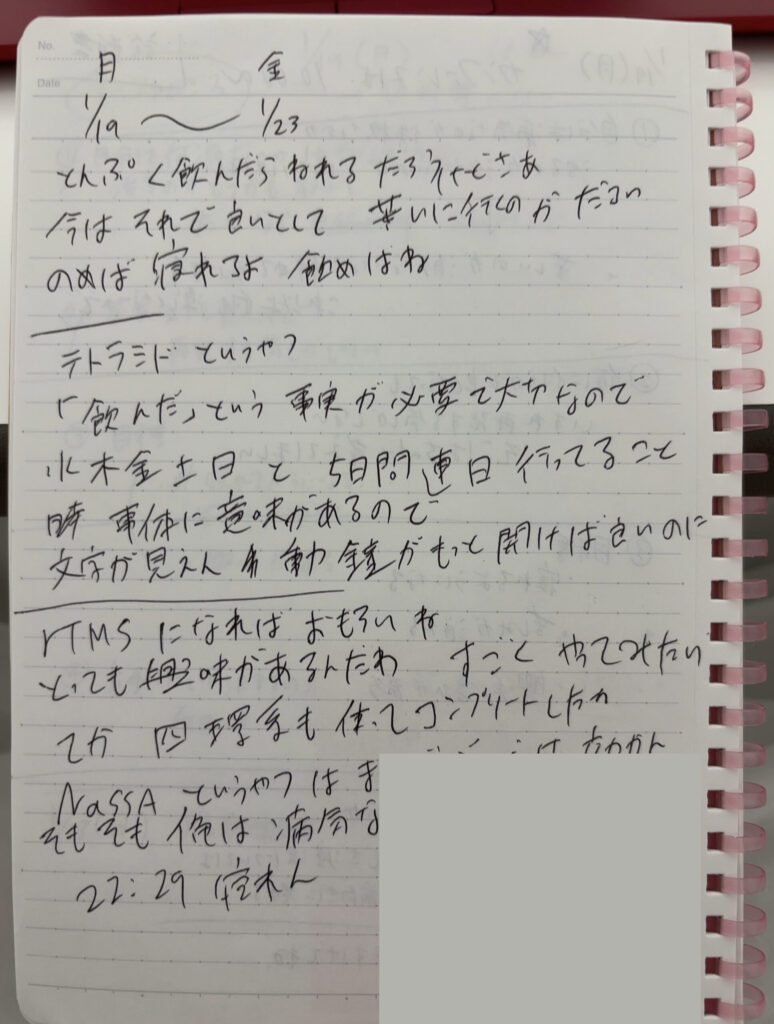 No.
Date
月 金
1/19 〜 1/23
とんぷく飲んだらねれるだろうけどさあ
今はそれで良いとして 苦いに行くのがだるい
のめば寝れるよ 飲めばね
テトラミドというやつ
「飲んだ」という事実が必要で大切なので
水木金土日と 5日間連日行ってること
事体に意味があるので
文字が見えん 動 鐘がもっと開けば良いのに
rTMSになればおもろいね
とっても興味があるんだわ すごくやってみたい
てか 四環系も使ってコンプリートしたか
NaSSAというやつはま
そもそも俺は病気な
22:29 寝れん